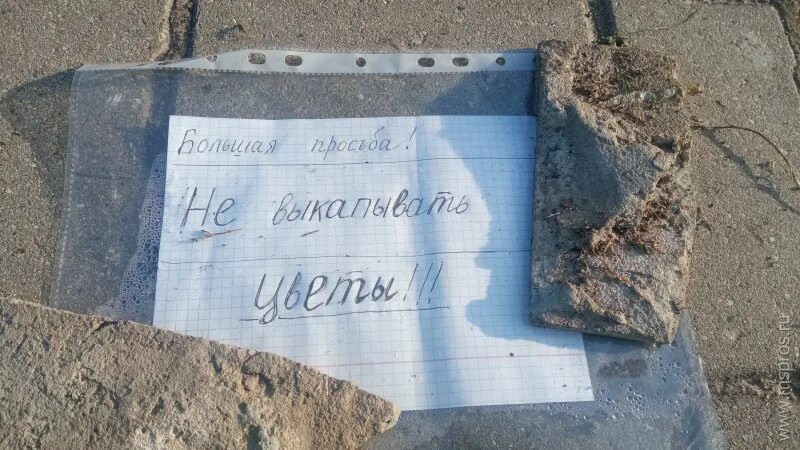 Большая просьба!
Не выкапывать
цветы!!!
www.inspros.ru